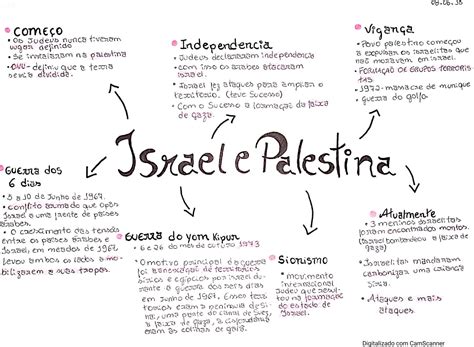 começo
• Os Judeus nunca tiveram
lugar definido
• Se instalaram na palestina
• ONU- definiu que a terra
seria dividida.
Independencia
• Judeus declararam independência
• com isso os árabes atacaram
israel.
• Israel fez ataques para ampliar o
território. (teve sucesso)
• Com o sucesso a formação da faixa
de gaza.
Vigança
• Povo palestino começou
a expulsar os israelitas que
não moravam em israel.
• FORMAÇÃO DE GRUPOS TERRORIS
TAS
• 1972- massacre de munique
• guerra do golfo.
Israel e Palestina
Guerra dos
6 dias
• 5 a 10 de Junho de 1967.
• conflito armado que opôs
Israel a uma frente de países
árabes.
• O crescimento das tensões
entre os países árabes e
Israel, em meados de 1967
levou ambos os lados a mo
bilizarem a suas tropas.
Guerra do yom Kipur
• 6 a 26 do mês de outubro 1973
• O motivo principal da guerra
foi
territórios
sírios e egípcios por israel du
rante a guerra dos seis dias
em junho de 1967. Esses terri
tórios eram a península de
sinai, uma ponte do canal de Suez,
a faixa de gaza, a cisjordânia
eram as colinas de golã.
Sionismo
• movimento
internacional
Judeu que resul
tou na formação
do estado de
Israel.
Atualmente
• 3 meninos israelitas
foram encontrados mortos
(Israel bombardeou a faixa
de gaza)
• Israelitas mandaram
carbonizar uma criança
• Ataques e mais
ataques
Digitalizado com CamScanner